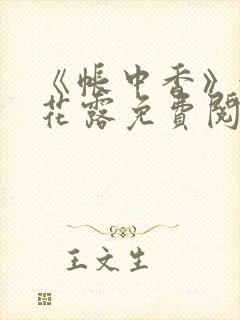 《帐中香》
花露免费阅
王文生